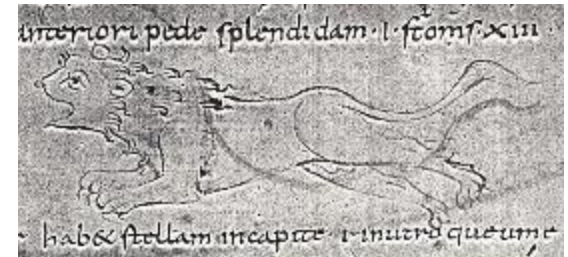 anteriori pede splendidam · I · st̄oms · XIII ·
hab& stellam incapite · I · inutro queume